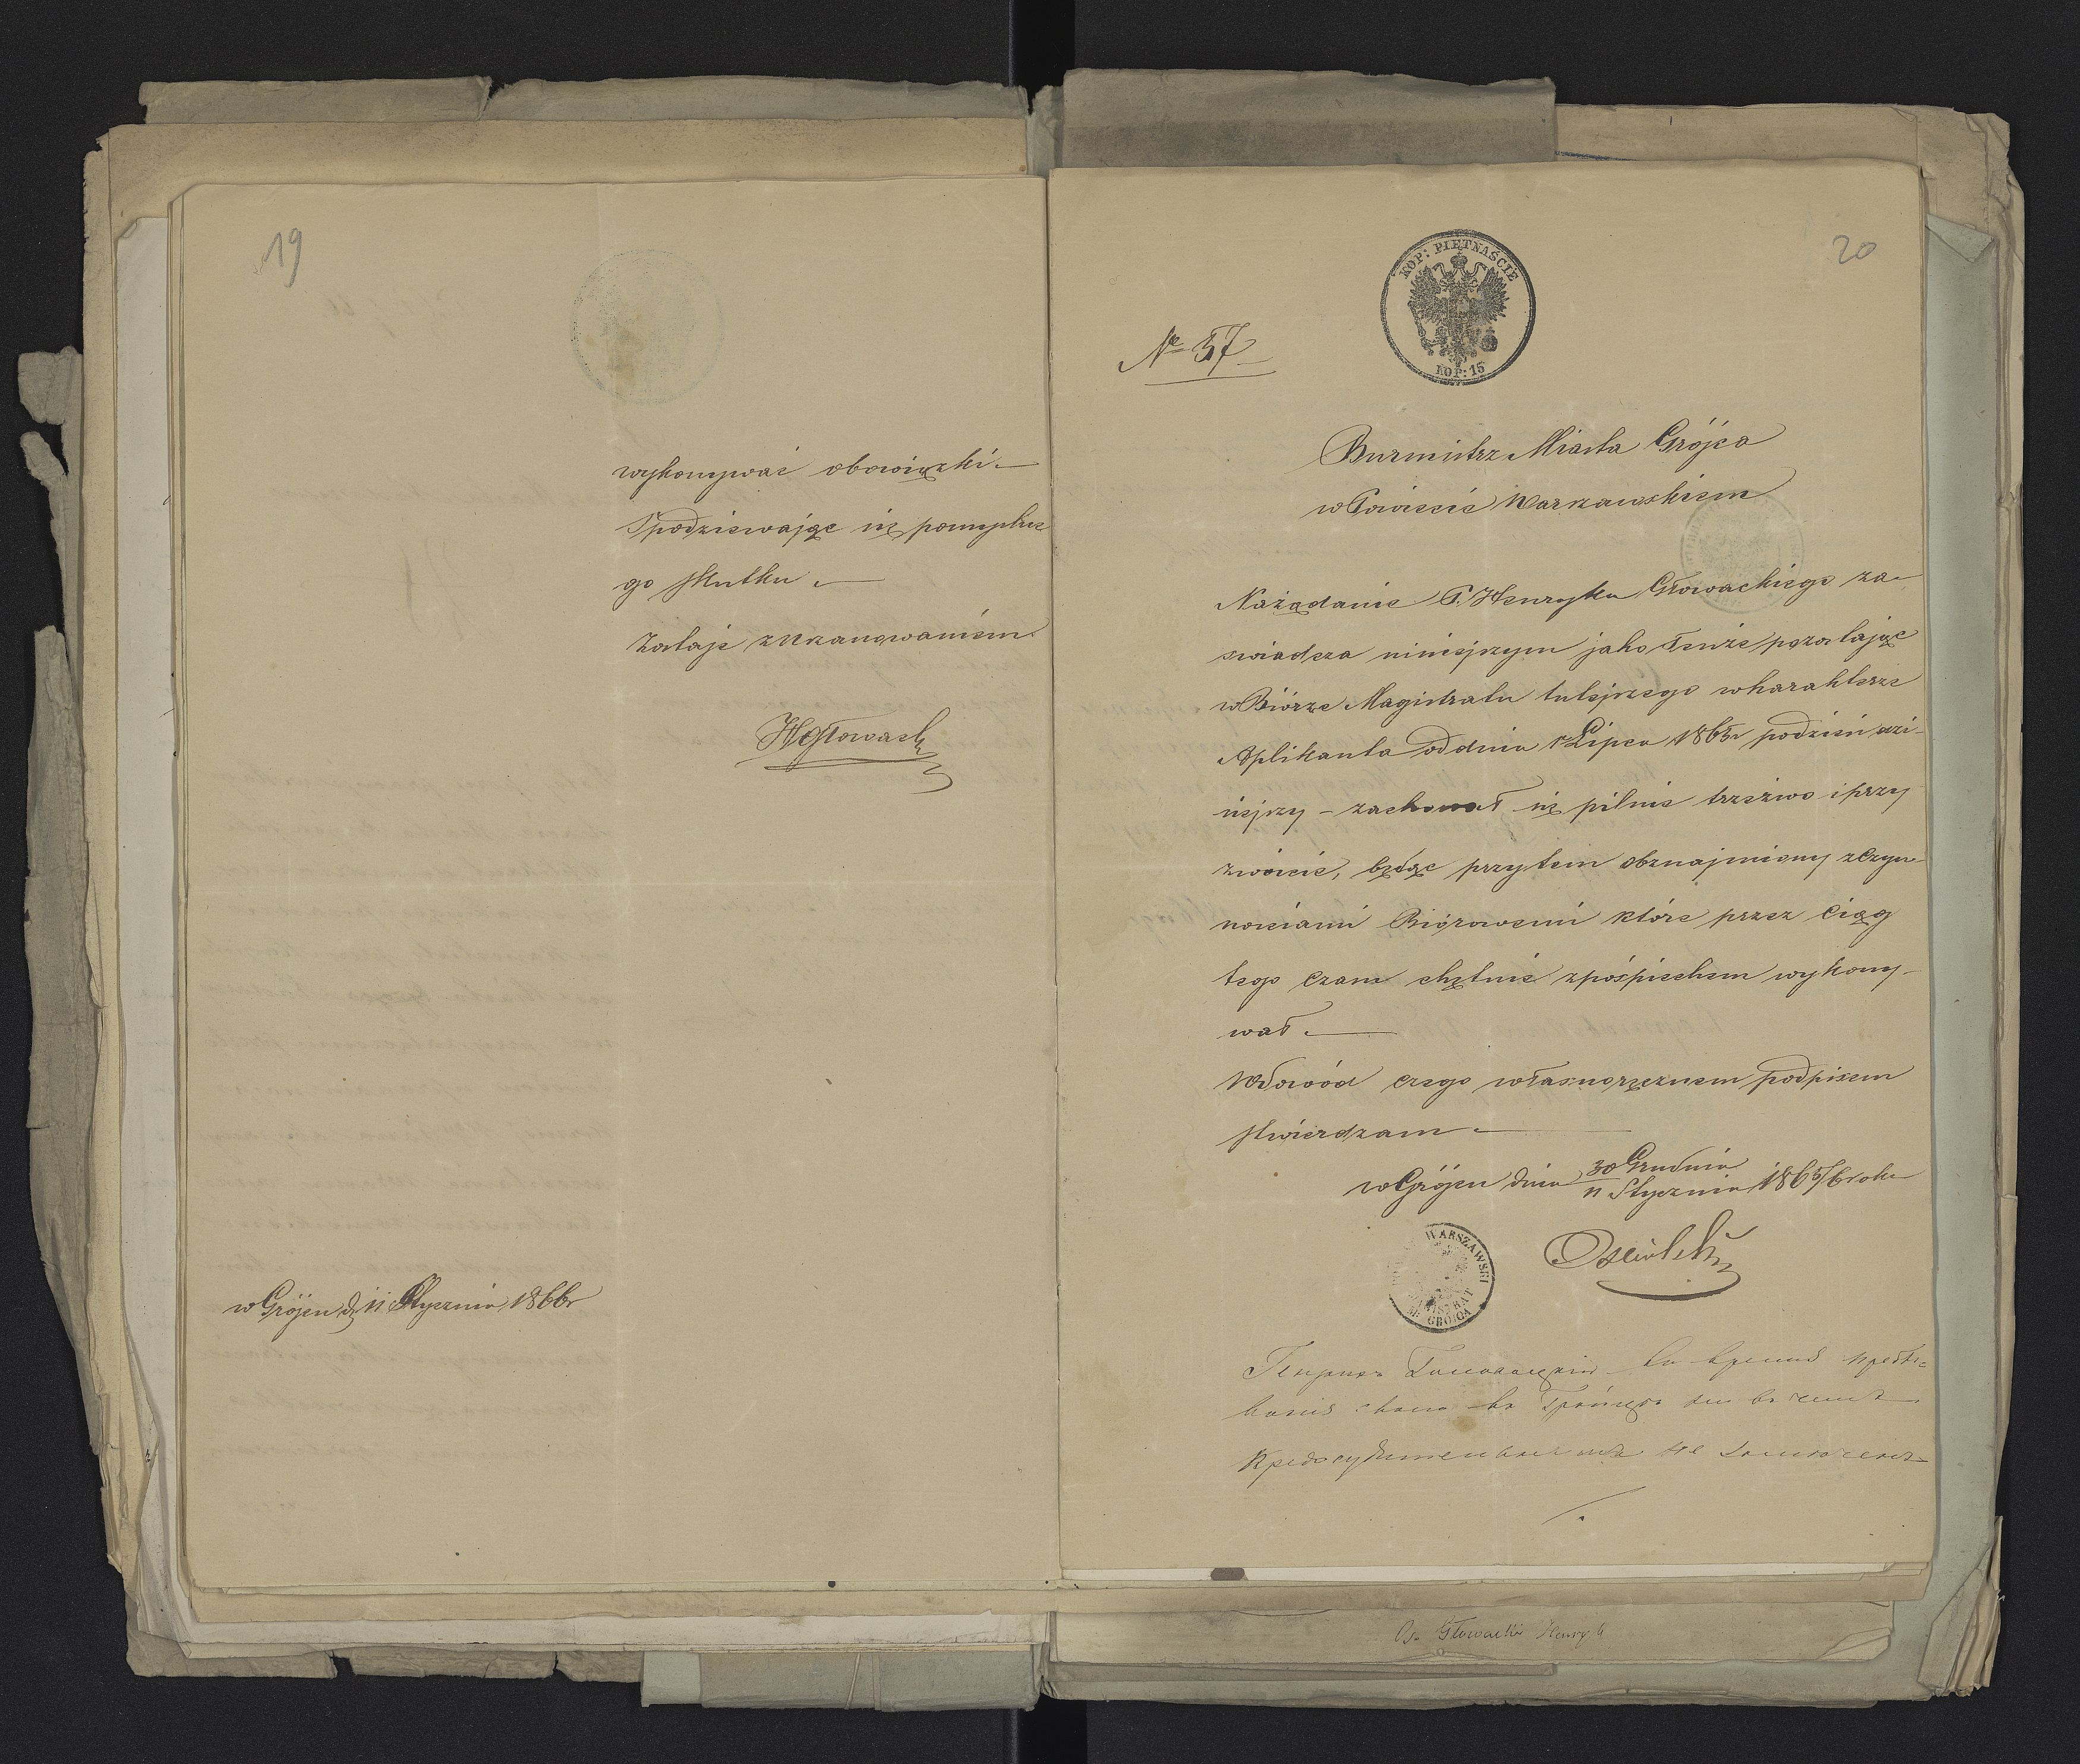 19
wykonywać obowiązki. —
Spodziewając się pomyślne
go skutku. —
Zostaje z uszanowaniem
HGłowacki
w Grójcu d. 11 Stycznia 1866 r
20
KOP: PIĘTNAŚCIE
KOP: 15
№ 57
Burmistrz Miasta Grójca
w Powiecie Warszawskiem
Na żądanie P. Henryka Głowackiego za-
świadcza niniejszym jako tenże pozostając
w Biórze Magistratu tutejszego w harakterze
Aplikanta od dnia 1 Lipca 1865 r po dzień dzi-
siejszy – zachował się pilnie trzeźwo i przy
zwoicie, będąc przytem obznajmiony z Czyn-
nościami Biórowemi które przez Ciąg
tego Czasu chętnie z pośpiechem wykony-
wał. —
W dowód czego własnoręcznem podpisem
stwierdzam. —
w Grójcu dnia 30 Grudnia
11 Stycznia 1865/6 roku
WARSZAWSKI
MAGISTRAT
GRÓJCA
Генрих Гловацкий во время пребы-
вания своего в Гройцах ни в чем
предосудительном не замечен
Os. Głowacki Henryk